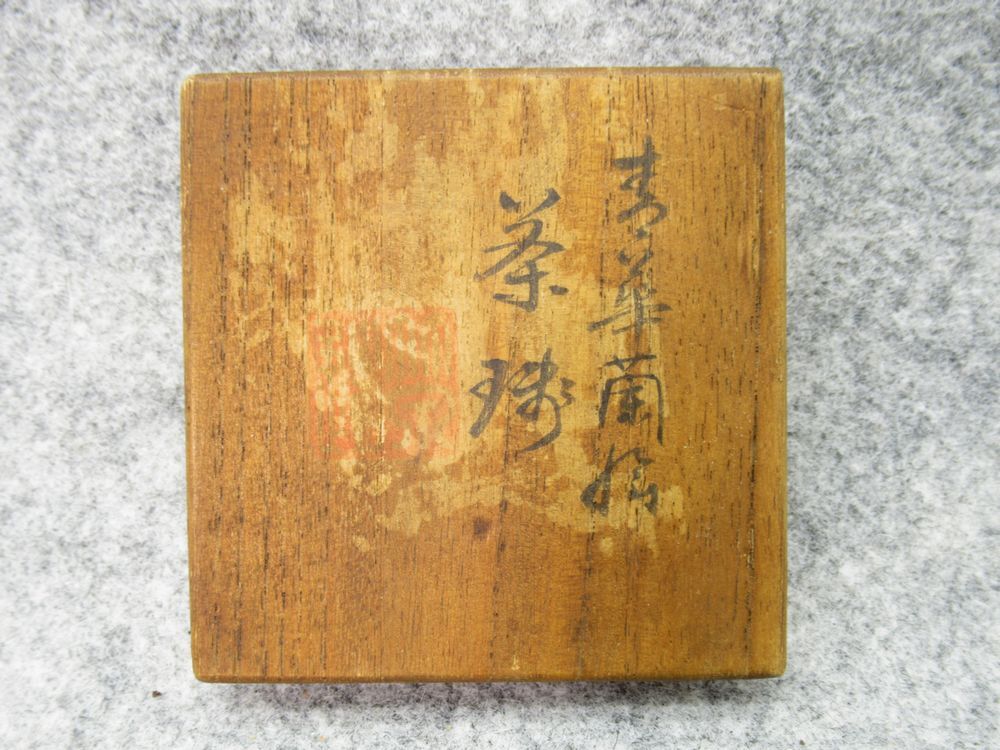 青華蘭絵
茶琖